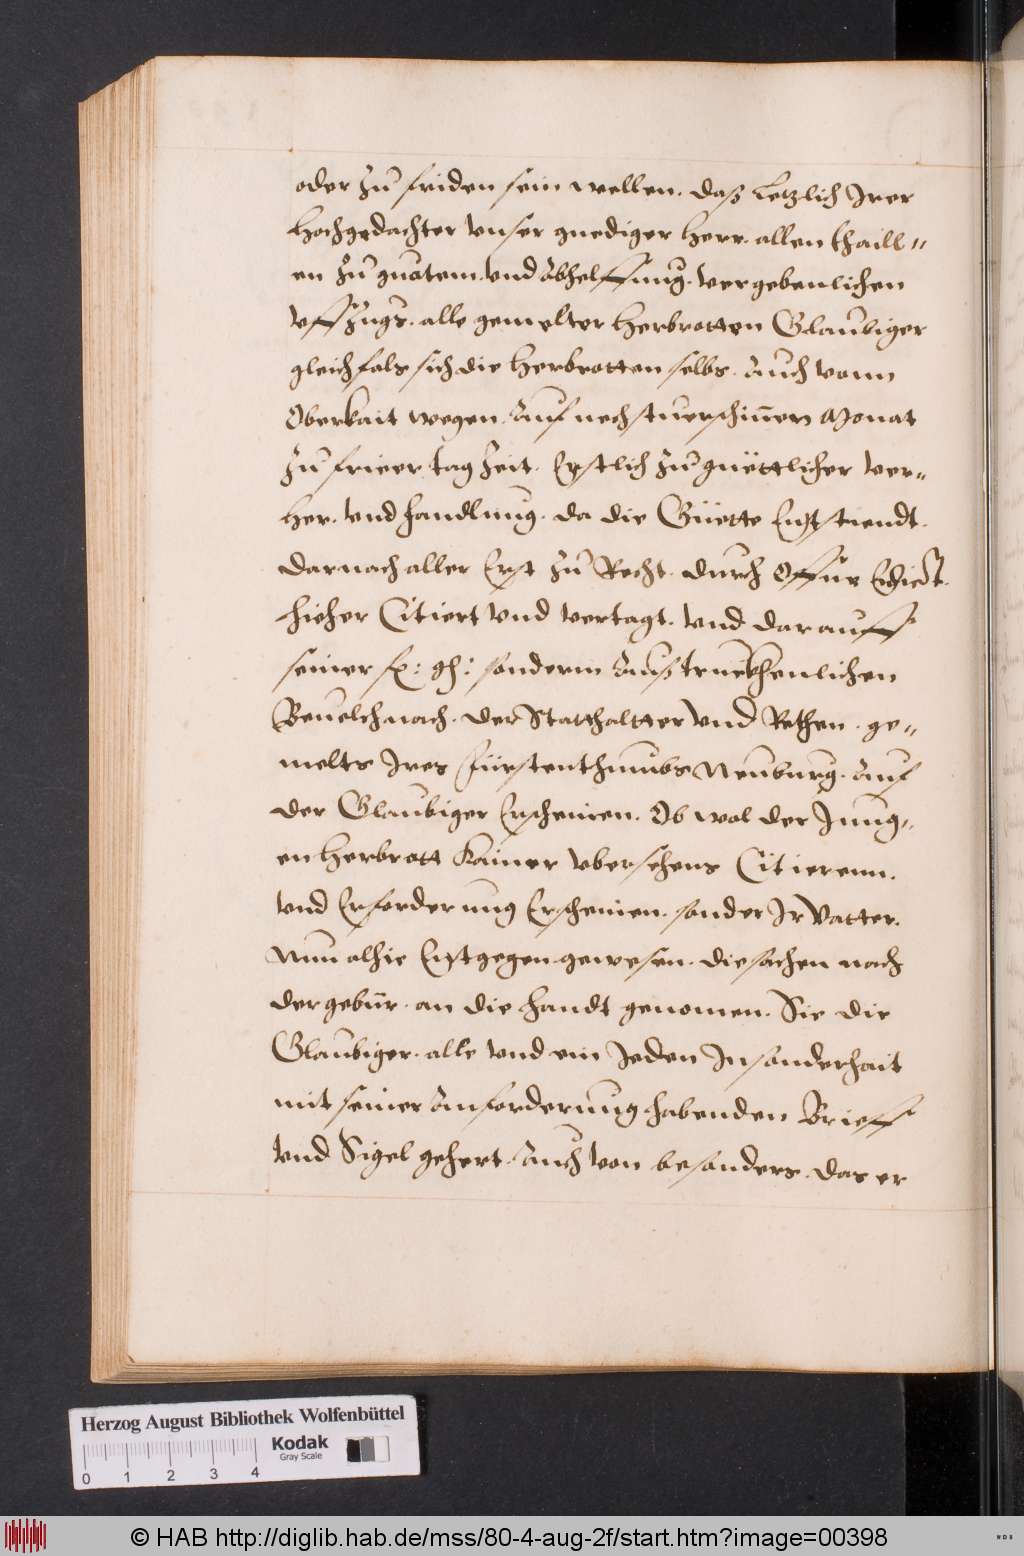 oder zu friden sein wellen. daß Letzlich Irer
hochgedachter vnser gnediger herr. allen thaill=
en zu guatem. vnd Abhelffung. vergebenlichen
vffzugs. alle gemelter herbrotten Glaubiger
gleichfals sich die herbrotten selbs. Auch vonn
Oberkait wegen. Auf nechstuerschinnen Monat
zu frieer tag Zeit. Erstlich zu guettlicher ver=
her. vnd handlung. da die Güette Entstiendt.
darnach aller Erst zu Recht. durch Offne Edict.
hieher Citiert vnd vertagt. vnd darauff
seiner fr: gh: sonderm Außtruckhenlichen
Beuelch nach. der Statthaltter vnd Rethen. ge=
melts Ires Fürstenthumbs Neuburg. Auf
der Glaubiger Erscheinen. Ob wol der Jung=
en herbrott Kainer vbersehens Citierenn.
vnd Erforderung Erscheinen. sonder Ir Vatter.
Nun alhie Entgegen gewesen. die sachen nach
der gebür. an die handt genomen. Sie die
Glaubiger. alle vnd ein Jeden In sonderhait
mit seiner Anforderung habenden Brieff
vnd Sigel gehert. Auch von besonders. das er
Herzog August Bibliothek Wolfenbüttel
Kodak
Gray Scale
0 1 2 3 4
© HAB http://diglib.hab.de/mss/80-4-aug-2f/start.htm?image=00398